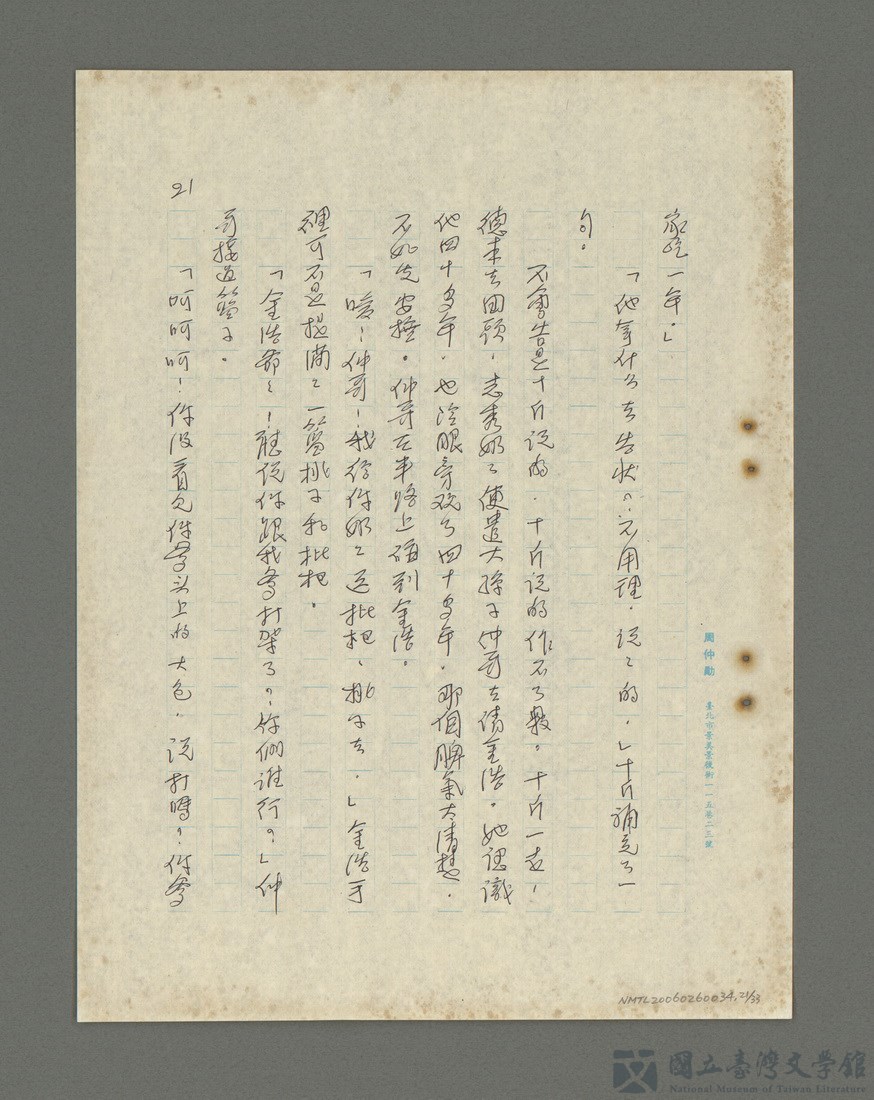 家吃一年。」
「他拿什么去告状？不用理，說說的，」十斤補充了一
句。
不會告是十斤說的，十斤說的作不了數。十斤一走，
德末去回頭，志秀奶奶使遣大孫子仲哥去請金浩。她認識
他四十多年，也冷眼旁观了四十多年，那個脾氣大清楚，
不如先安撫。仲哥在半路上碰到金浩。
「嗳！仲哥！我給你奶奶送枇杷、桃子去，」金浩手
裡可不是提滿滿一籃桃子和枇杷。
「金浩爺爺！聽說你跟我爹打架了？你們誰行？」仲
哥接過籃子。
「呵呵呵！你沒看見你爹头上的大包，說打嗎？你爹
21
周仲勛
臺北市景美景後街一一五巷二三號
NMTL20060260034,21/33
國立臺灣文學館
National Museum of Taiwan Literature